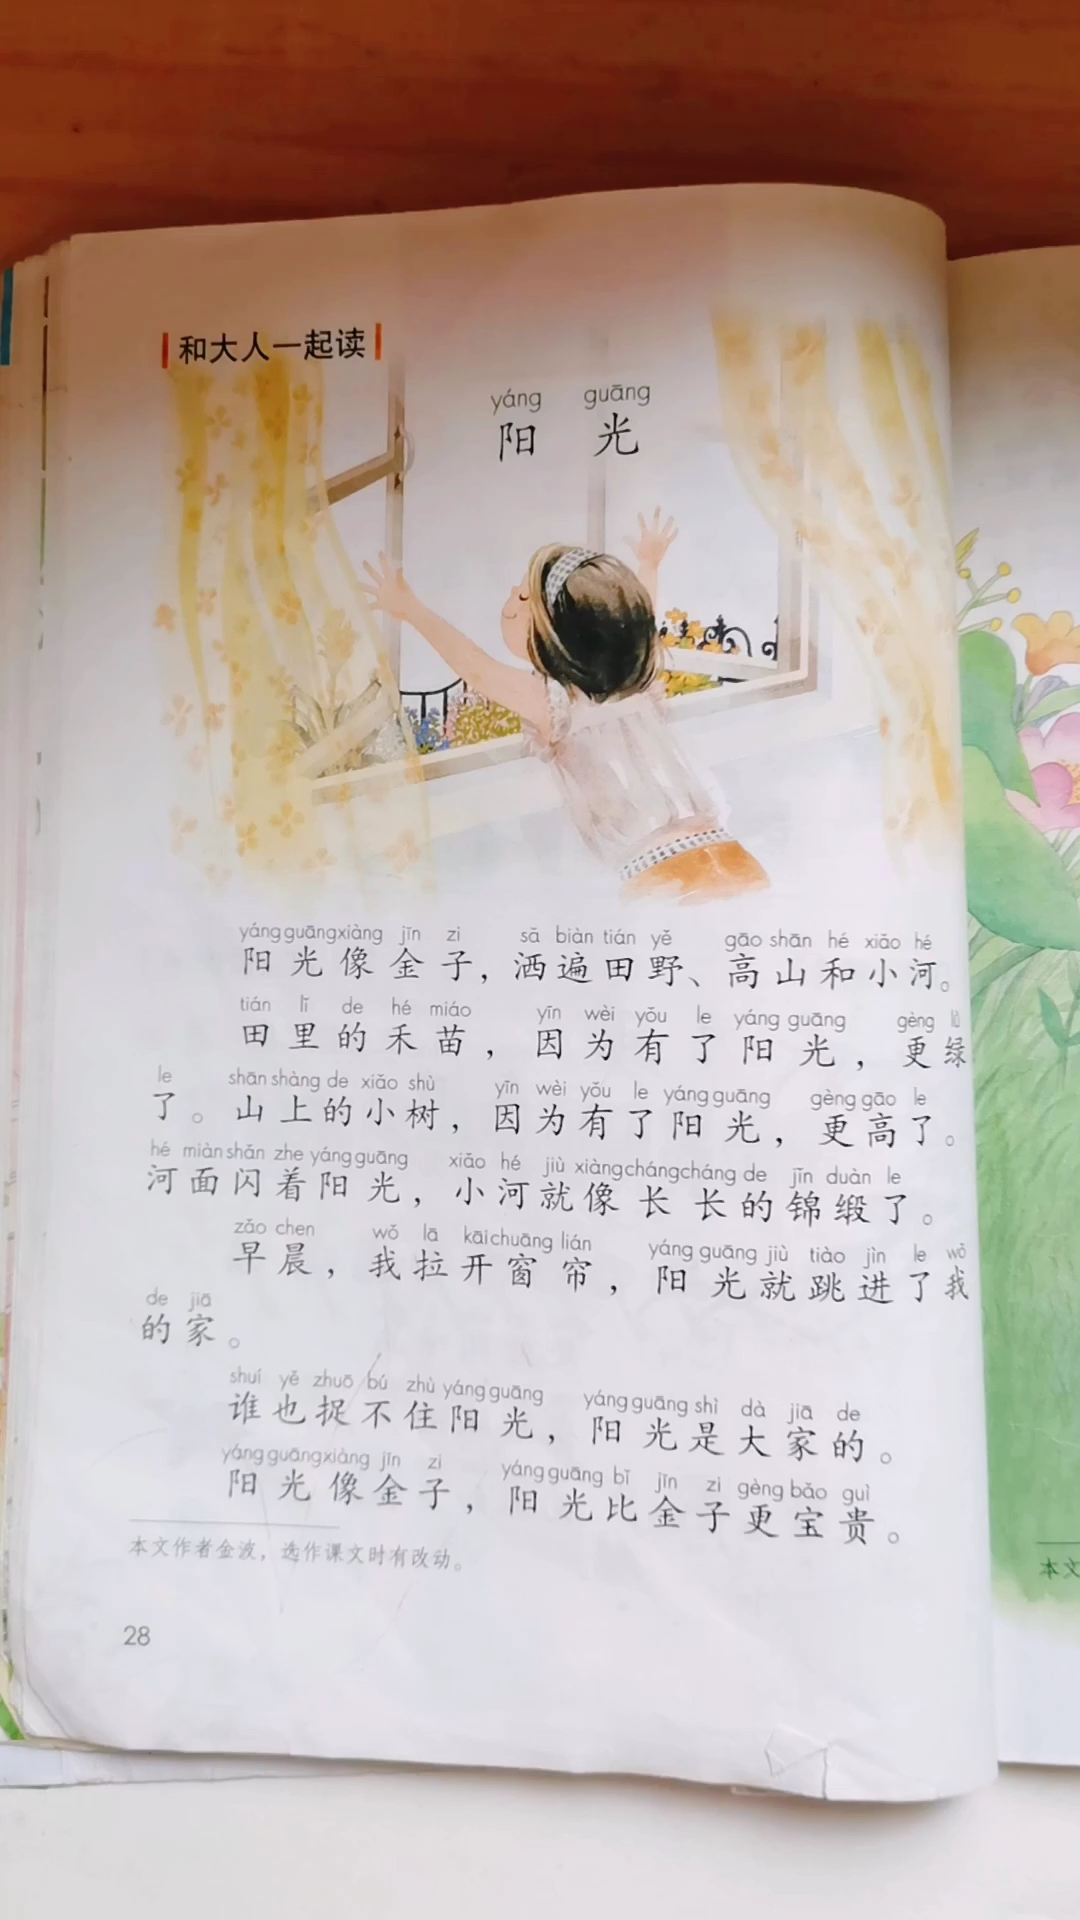 和大人一起读
yáng guāng
阳 光
yáng guāng xiàng jīn zi sǎ biàn tián yě gāo shān hé xiǎo hé
阳光像金子，洒遍田野、高山和小河。
tián lǐ de hé miáo yīn wèi yǒu le yáng guāng gèng lǜ
田里的禾苗，因为有了阳光，更绿
le shān shàng de xiǎo shù yīn wèi yǒu le yáng guāng gèng gāo le
了。山上的小树，因为有了阳光，更高了。
hé miàn shǎn zhe yáng guāng xiǎo hé jiù xiàng cháng cháng de jǐn duàn le
河面闪着阳光，小河就像长长的锦缎了。
zǎo chen wǒ lā kāi chuāng lián yáng guāng jiù tiào jìn le wǒ
早晨，我拉开窗帘，阳光就跳进了我
de jiā
的家。
shuí yě zhuō bú zhù yáng guāng yáng guāng shì dà jiā de
谁也捉不住阳光，阳光是大家的。
yáng guāng xiàng jīn zi yáng guāng bǐ jīn zi gèng bǎo guì
阳光像金子，阳光比金子更宝贵。
本文作者金波，选作课文时有改动。
28